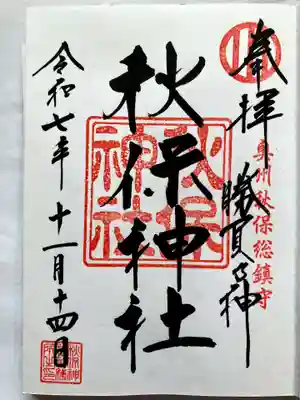 奉拝
勝負の神
奥州秋保総鎮守
秋保神社
秋保神社
令和七年十一月十四日